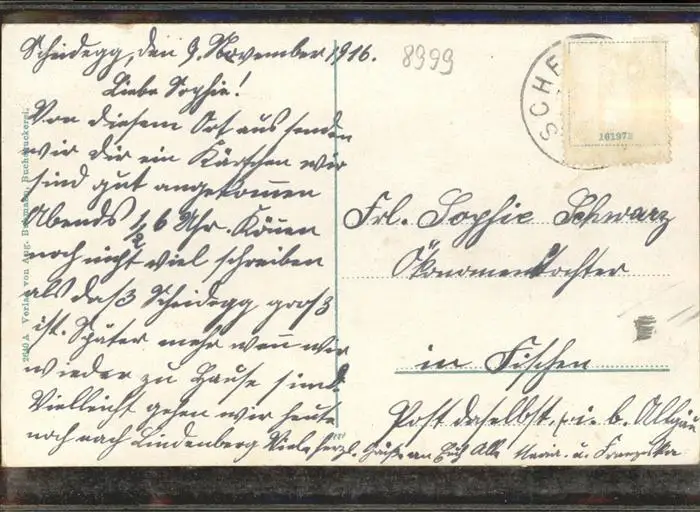 Scheidegg, den 9. November 1916.
8999
Liebe Sophie!
Von diesem Ort aus senden
wir dir ein Kärtchen wir
sind gut angekommen
Abends 1/2 6 Uhr. Können
noch nicht viel schreiben
als daß Scheidegg groß
ist. Später mehr wenn wir
wieder zu Hause sind.
Vielleicht gehen wir heute
noch nach Lindenberg Viele herzl. Grüße an Euch Alle u. Franziska
2640 A Verlag von Aug. Buchdruckerei.
SCHE
161972
Frl. Sophie Schwarz
Ökonomentochter
in Fischen
Post daselbst, i. b. Allgäu